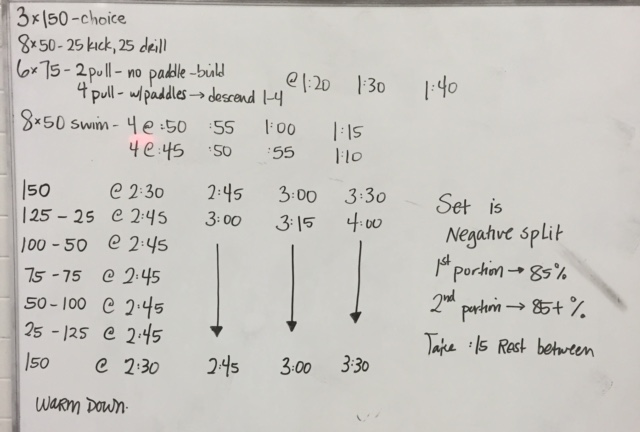 3x150-choice
8x50-25 kick, 25 drill
6x75-2pull-no paddle-build
4 pull-w/paddles→descend 1-4 @1:20 1:30 1:40
8x50 swim-4@:50 :55 1:00 1:15
4@:45 :50 :55 1:10
150 @ 2:30 2:45 3:00 3:30
125-25 @ 2:45 3:00 3:15 4:00
100-50 @ 2:45
75-75 @ 2:45
50-100 @ 2:45
25-125 @ 2:45
150 @ 2:30 2:45 3:00 3:30
Warm Down.
Set is
Negative split
1st portion→85%
2nd portion→85+%
Take :15 Rest between